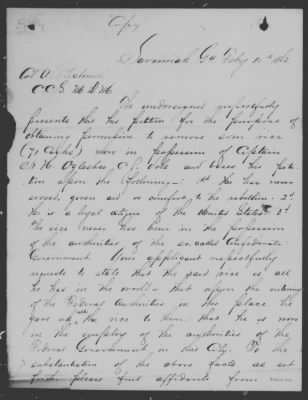 Copy
Savannah Ga Feby 1865
Col O
C.C.S.
The undersigned respectfully
presents this his petition for the purpose of
obtaining permission to remove some rice
(71 Casks) now in possession of Captain
and bases this peti-
tion upon the following: 1st He has never
served, given aid or comfort to the rebellion 2d
He is a legal citizen of the United States 3d
The rice never has been in the possession
of the authorities of the so-called Confederate
Government Your applicant respectfully
requests to state that the said rice is all
he has in the world & that upon the entering
of the Federal Authorities in this place he
gave up all the rice to them, that he is now
in the employ of the authorities of the
Federal Government in this City. To the
substantiation of the above facts as set
further please find affidavits from men